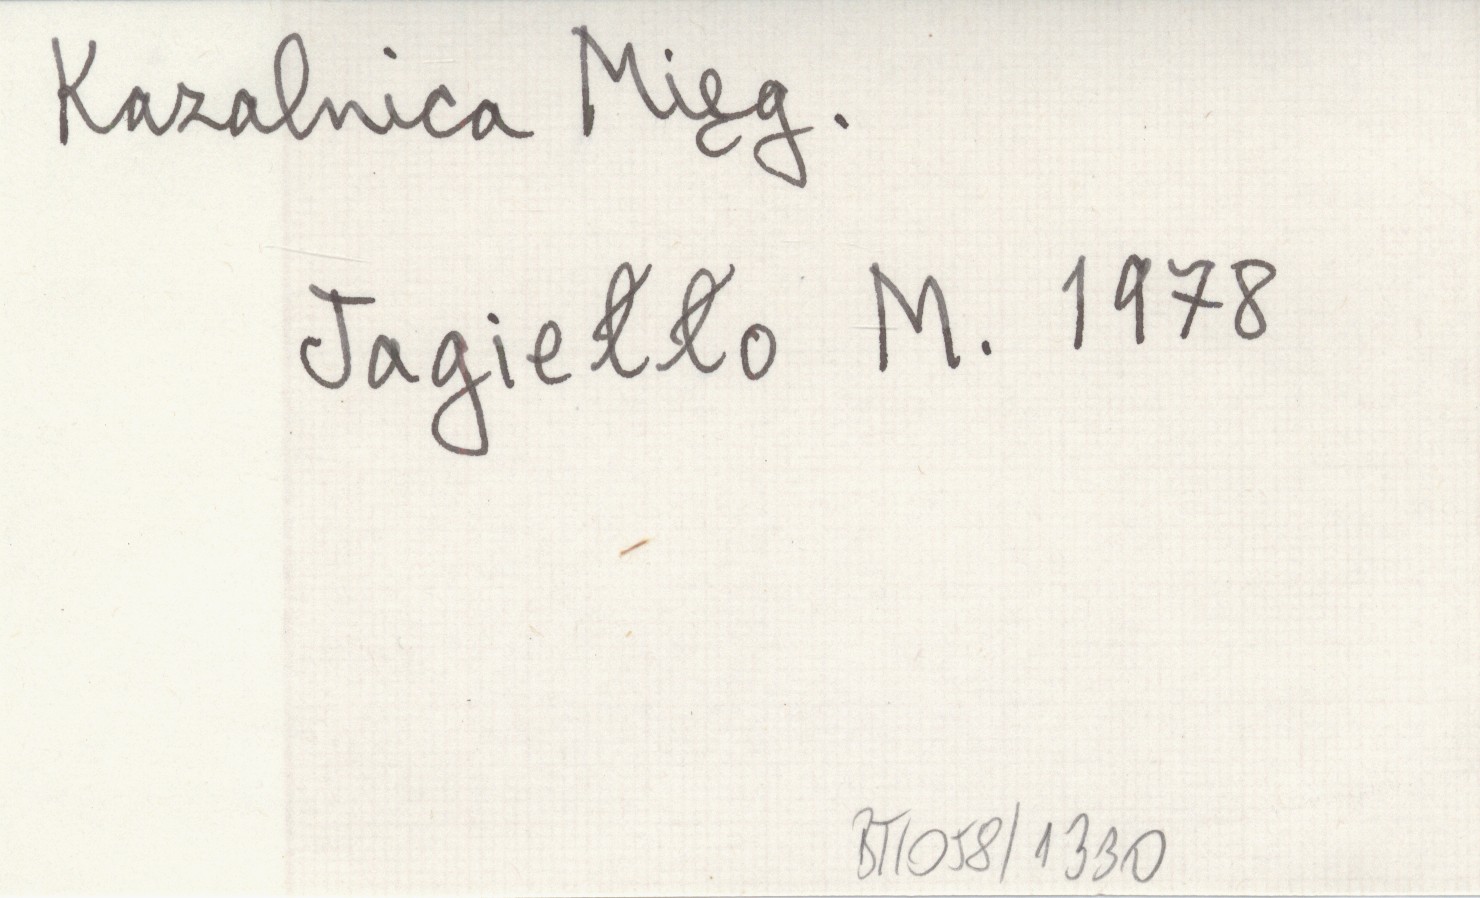 Kazalnica Mięg.
Jagiełło M. 1978
BT/058/1330